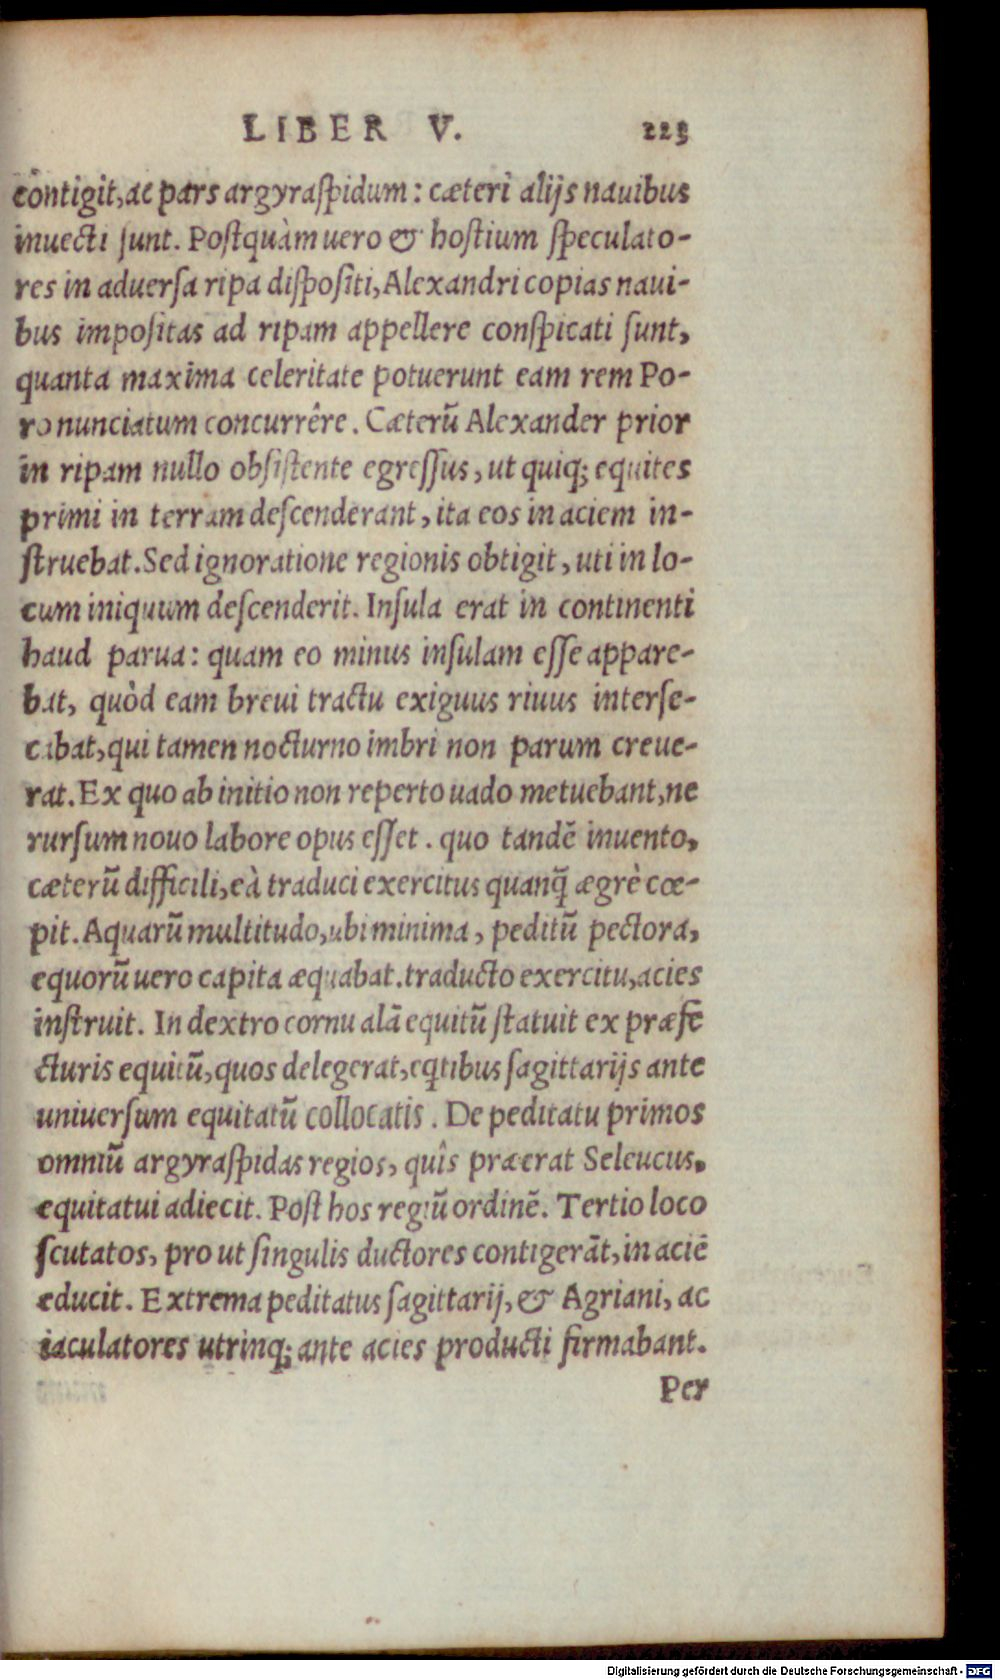 LIBER V. 223
cōntigit, ac pars argyraſpidum: cæteri alijs nauibus
inuecti ſunt. Poſtquàm uero & hoſtium ſpeculato-
res in aduerſa ripa diſpoſiti, Alexandri copias naui-
bus impoſitas ad ripam appellere conſpicati ſunt,
quanta maxima celeritate potuerunt eam rem Po-
ro nunciatum concurrêre. Cæterũ Alexander prior
in ripam nullo obſiſtente egreſſus, ut quiq; equites
primi in terram deſcenderant, ita eos in aciem in-
ſtruebat. Sed ignoratione regionis obtigit, uti in lo-
cum iniquum deſcenderit. Inſula erat in continenti
haud parua: quam eo minus inſulam eſſe appare-
bat, quòd eam breui tractu exiguus riuus interſe-
cabat, qui tamen nocturno imbri non parum creue-
rat. Ex quo ab initio non reperto uado metuebant, ne
rurſum nouo labore opus eſſet. quo tandē inuento,
cæterũ difficili, eà traduci exercitus quanq̃ ægrè cœ-
pit. Aquarũ multitudo, ubi minima, peditũ pectora,
equorũ uero capita æquabat. traducto exercitu, acies
inſtruit. In dextro cornu alā equitũ ſtatuit ex præfe-
cturis equitũ, quos delegerat, eq̃tibus ſagittarijs ante
uniuerſum equitatũ collocatis. De peditatu primos
omniũ argyraſpidas regios, quîs præerat Seleucus,
equitatui adiecit. Poſt hos regiũ ordinē. Tertio loco
ſcutatos, pro ut ſingulis ductores contigerāt, in aciē
educit. Extrema peditatus ſagittarij, & Agriani, ac
iaculatores utrinq; ante acies producti firmabant.
Per
Digitalisierung gefördert durch die Deutsche Forschungsgemeinschaft - DFG